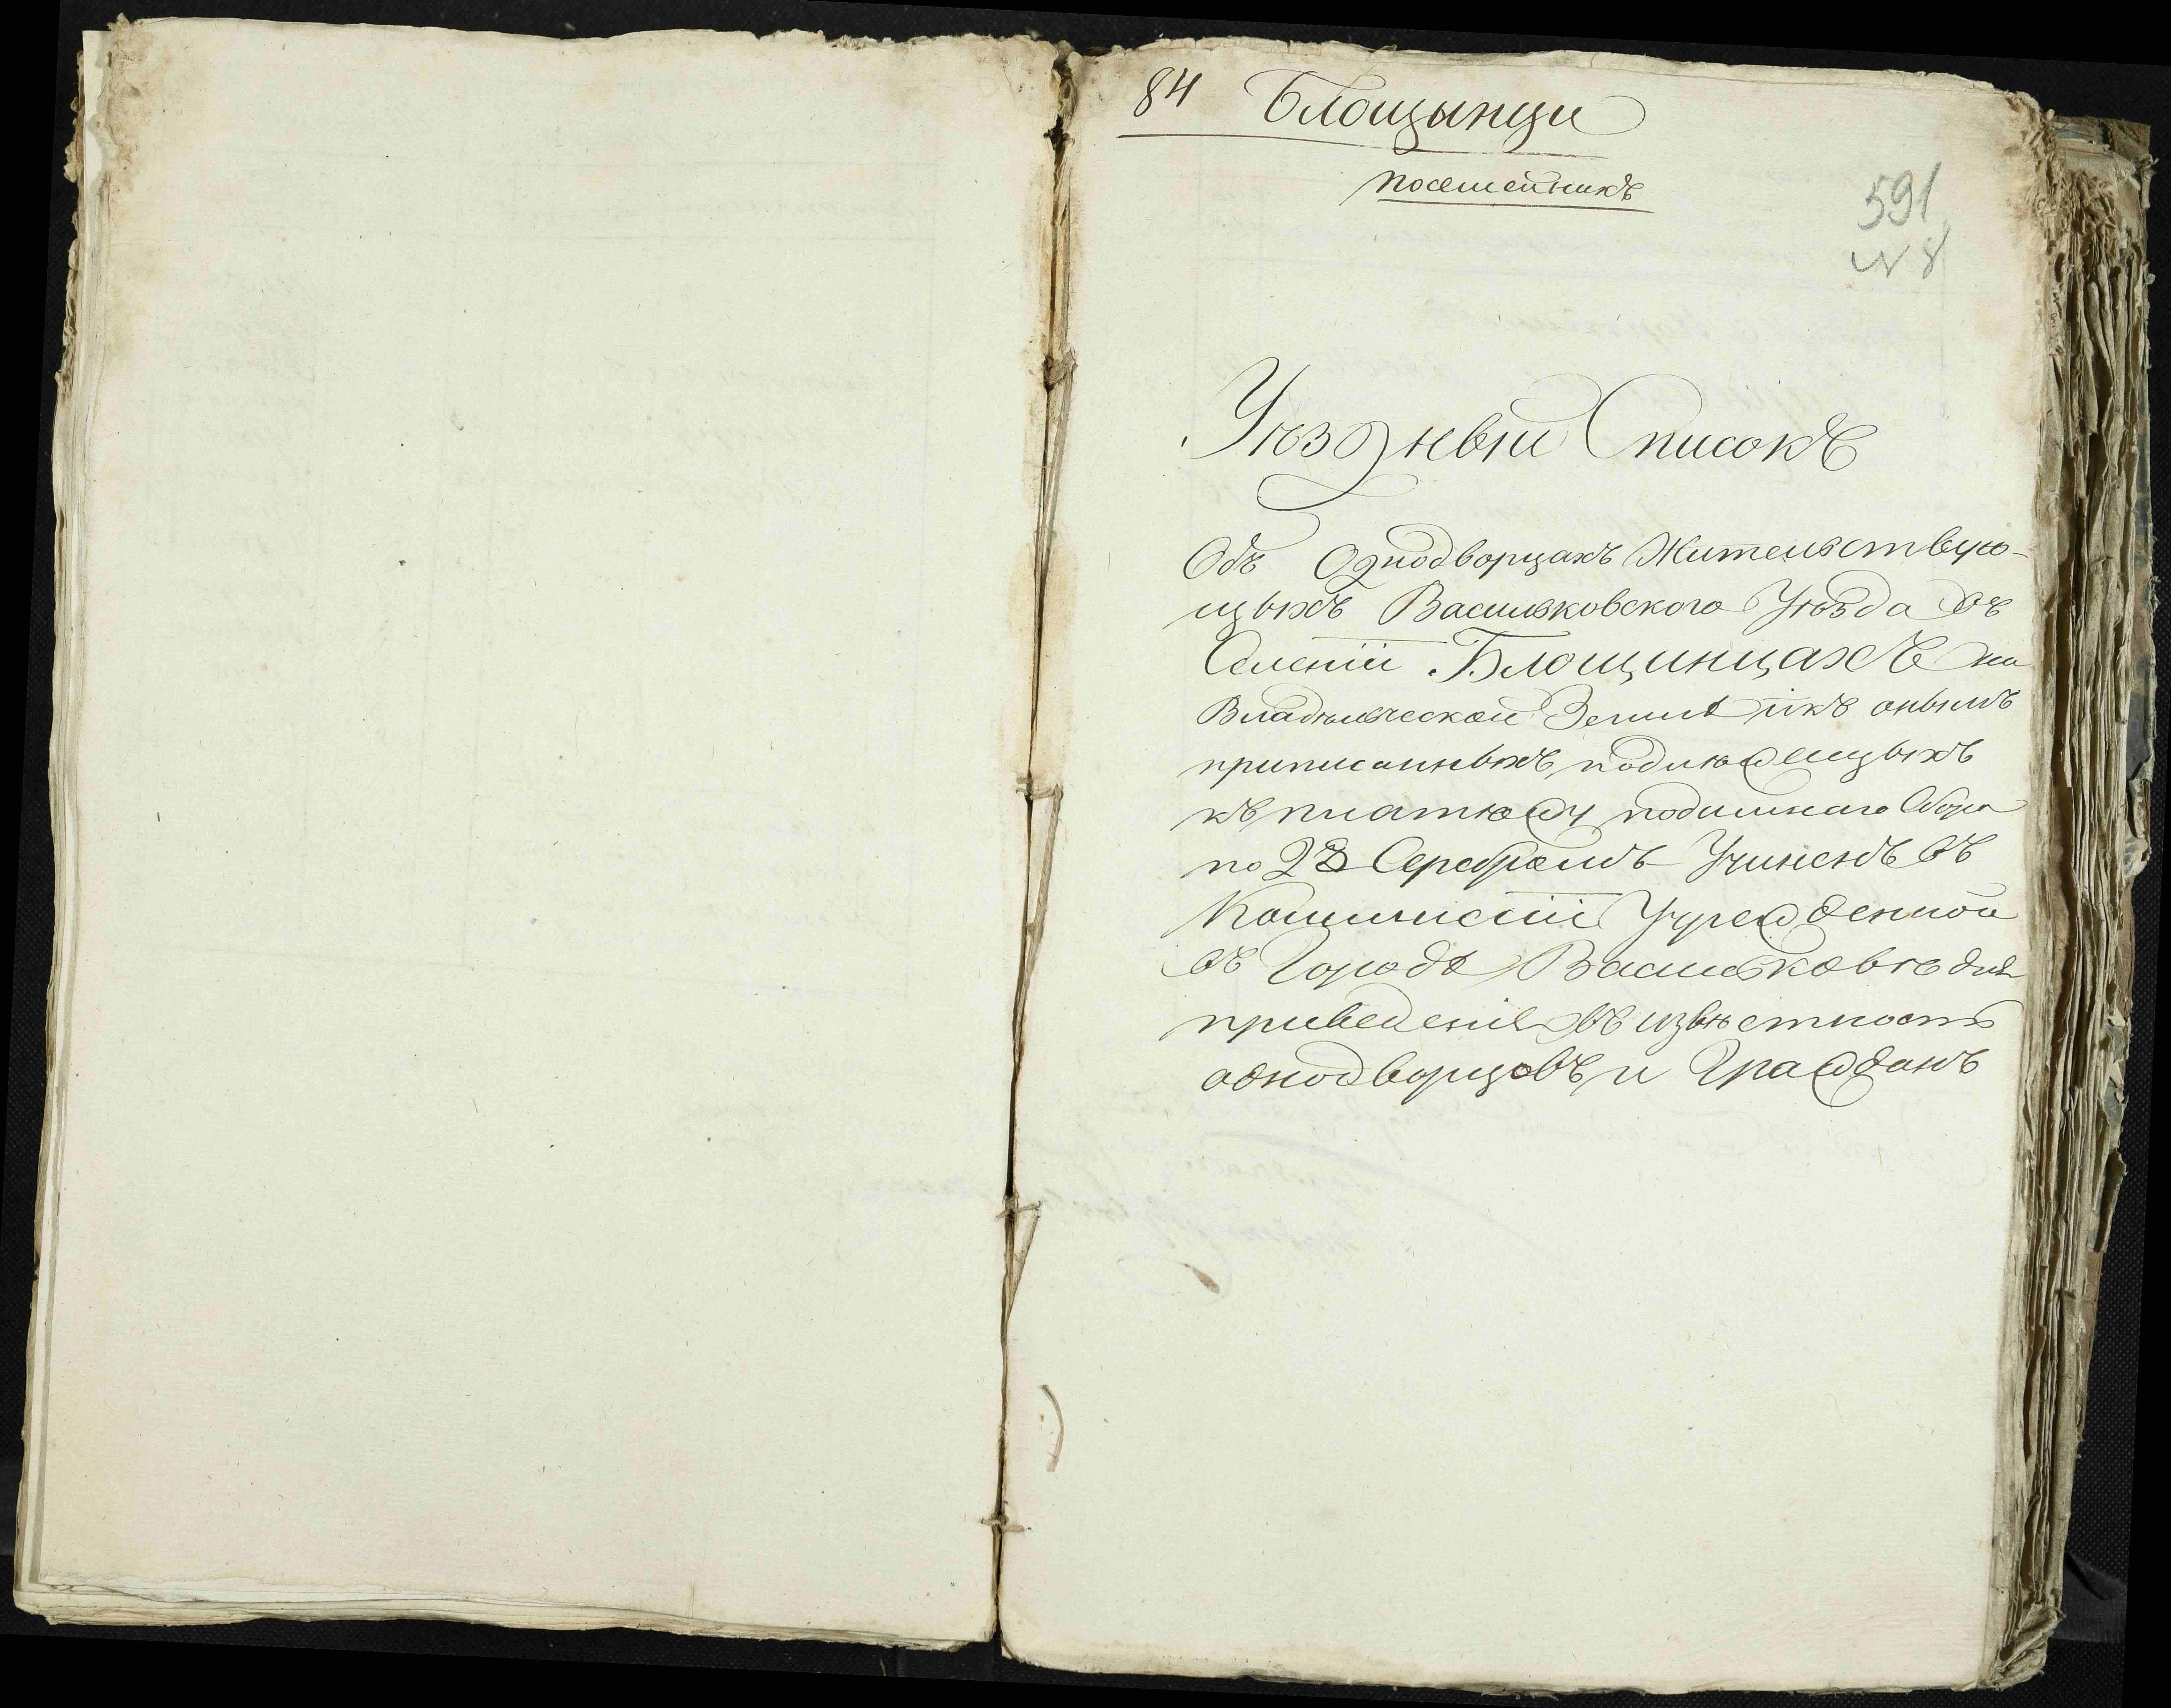 84 Блощынци
посемейникъ
591
N 8
Уѣздный Списокъ
Объ Однодворцахъ Жительствую-
щыхъ Васильковского Уѣзда въ
Селеніи Блощинцахъ на
Владѣльческой Земли и къ онымъ
приписанныхъ подлѣжащыхъ
къ платѣжу подымнаго Сбора
по 2 Серебромъ Учиненъ въ
Коммисіи Учрежденной
въ Городѣ Васильковѣ для
приведенія въ извѣстность
однодворцовъ и Гражданъ